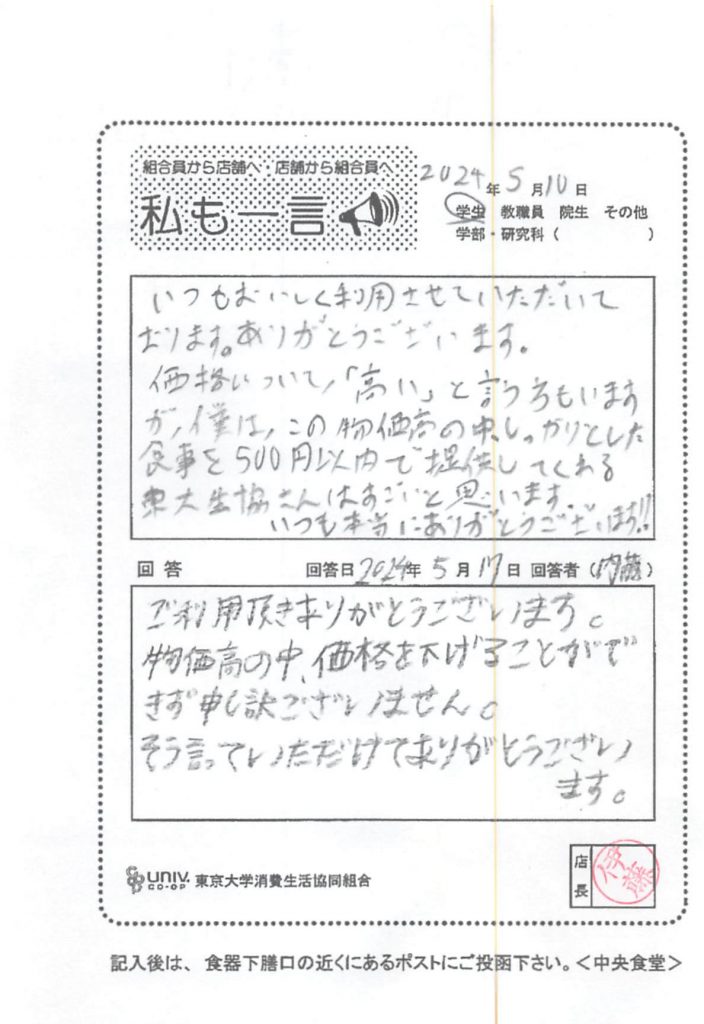 組合員から店舗へ・店舗から組合員へ
私も一言
2024年5月10日
学生 教職員 院生 その他
学部・研究科( )
いつもおいしく利用させていただいて
おります。ありがとうございます。
価格について,「高い」と言う方もいます
が,僕は,この物価高の中しっかりとした
食事を500円以内で提供してくれる
東大生協さんはすごいと思います.
いつも本当にありがとうございます!!
回答 回答日2024年5月17日 回答者(内藤)
ご利用頂きありがとうございます。
物価高の中、価格を下げることがで
きず申し訳ございません。
そう言っていただけてありがとうござい
ます。
UNIV. CO-OP 東京大学消費生活協同組合
店長 伊藤
記入後は、食器下膳口の近くにあるポストにご投函下さい。<中央食堂>